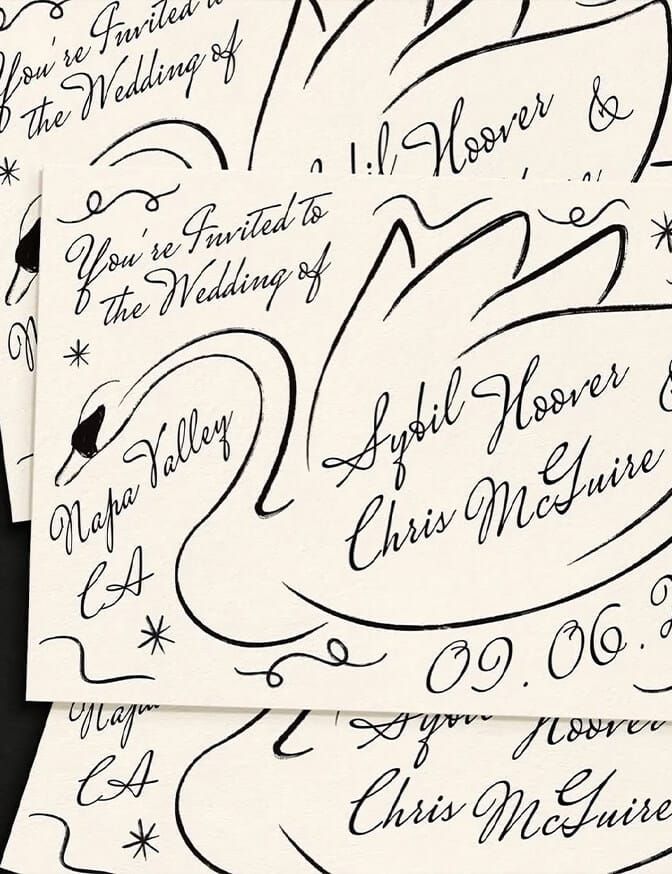 You're Invited to
the Wedding of
Sybil Hoover &
You're Invited to
the Wedding of
Napa Valley
CA
Sybil Hoover
Chris McGuire
09.06.
Napa
CA
Sybil Hoover
Chris McGuire